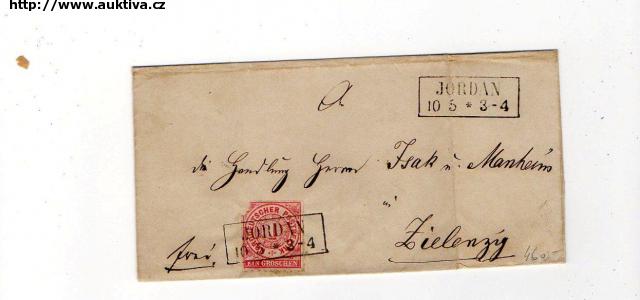 http://www.auktiva.cz
A
JORDAN
10 5 * 3-4
die Handlung Herren Isak u. Manheim
in
JORDAN
10 * 3-4
NORDDEUTSCHER POSTBEZIRK
EIN GROSCHEN
frei.
Zielenzig
460,-